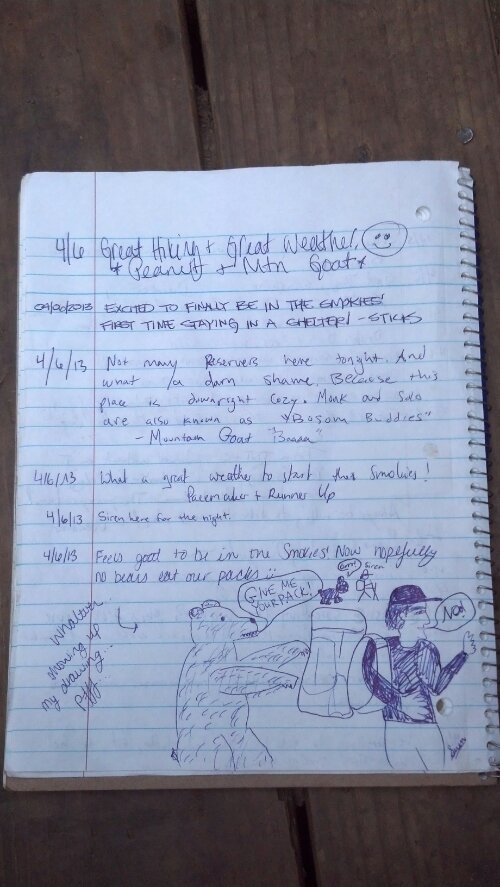 4/6 Great Hiking + Great Weather,
* Peanut + Mtn Goat *
04/06/2013 EXCITED TO FINALLY BE IN THE SMOKIES!
FIRST TIME STAYING IN A SHELTER! - STICKS
4/6/13 Not many Reservers here tonight. And
what a darn shame. Because this
place is downright cozy. Monk and Solo
are also known as "Bosom Buddies"
- Mountain Goat "Baaaa"
4/6/13 What a great weather to start the Smokies!
Pacemaker + Runner Up
4/6/13 Siren here for the night.
4/6/13 Feels good to be in the Smokies! Now hopefully
no bears eat our packs :)
Whatever
showing up
my drawing...
Pfff...
GIVE ME
YOUR PACK!
Grrr!
Siren
No!